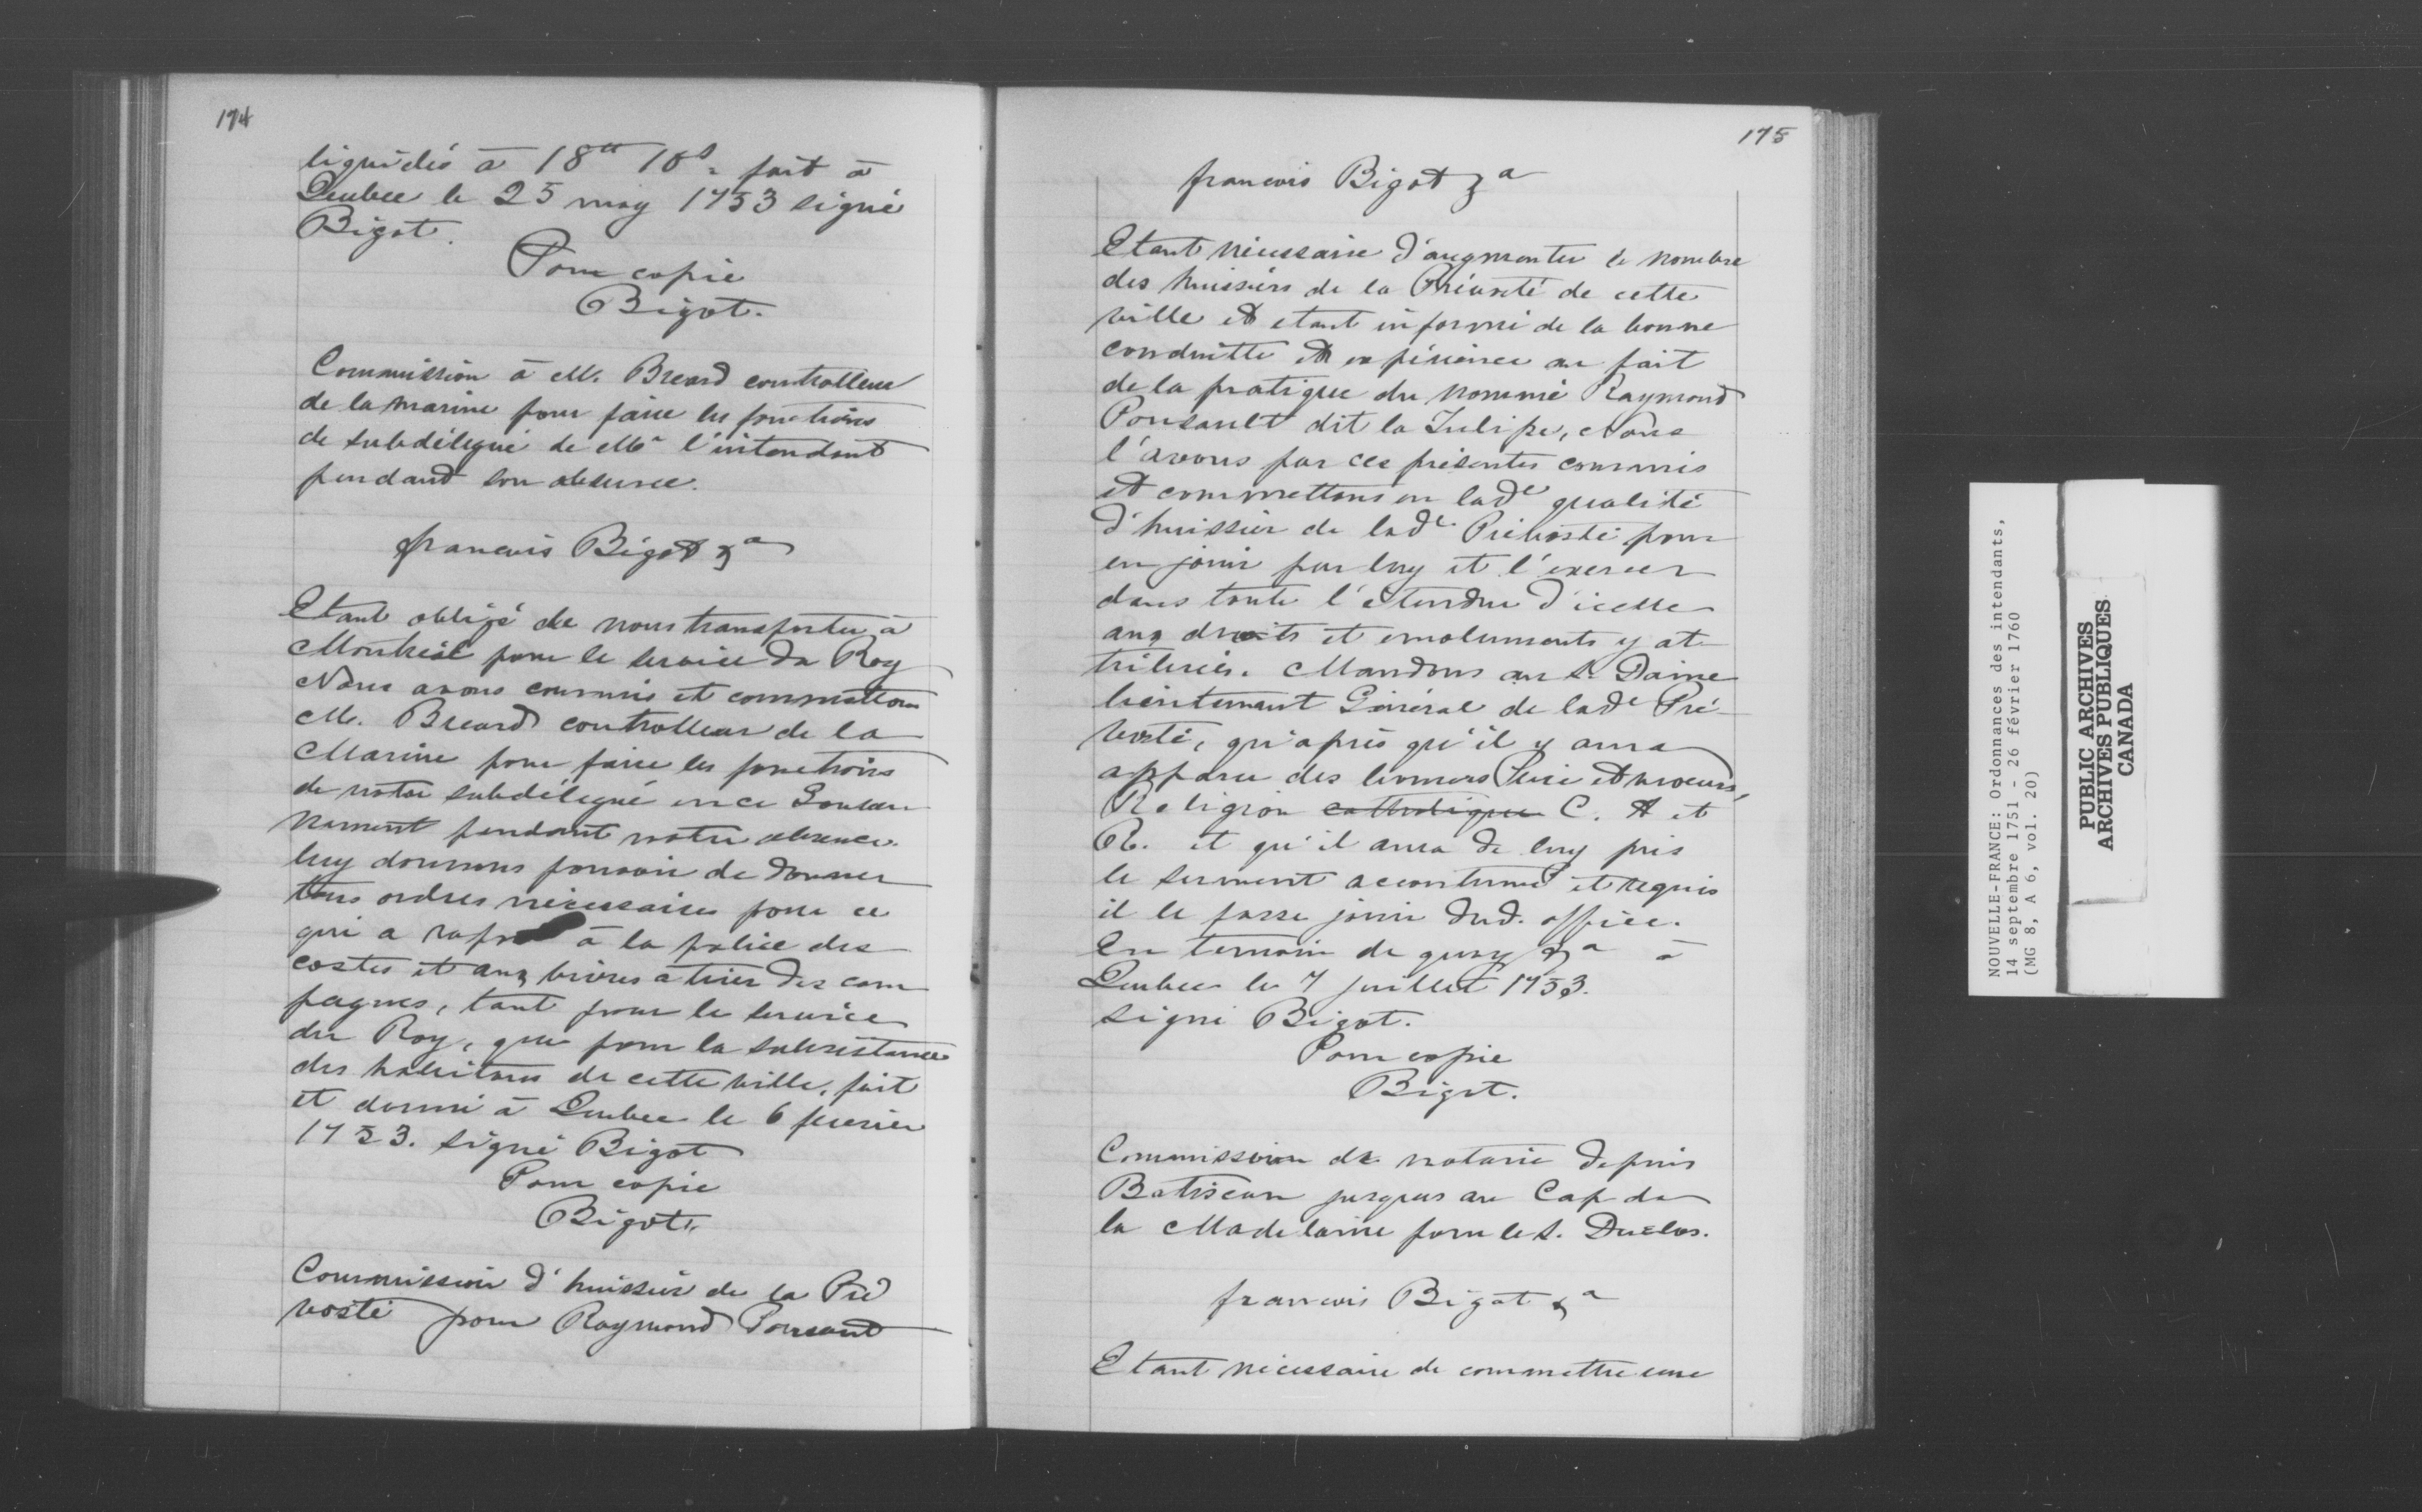 174
liquidés à 18tt 10s fait à
Quebec le 25 may 1753 signé
Bigot.
Pour copie
Bigot.
Commission à M. Breard controlleur
de la marine pour faire les fonctions
de subdélégué de Mr l'intendant
pendand son absence.
francois Bigot &a
Etant obligé de nous transporter à
Montréal pour le service du Roy
Nous avons commis et commettons
M. Breard controlleur de la
Marine pour faire les fonctions
de notre subdélégué en ce Gouver
nement pendant notre absence.
luy donnons pouvoir de donner
tous ordres nécessaires pour ce
qui a à la police des
costes et aux vivres a tirer des cam
pagnes, tant pour le service
du Roy, que pour la subsistance
des habitans de cette ville, fait
et donné à Quebec le 6 fevrier
1753. signé Bigot
Pour copie
Bigot.
Commission d'huissier de la Pré
vosté pour Raymond Ponsant
175
francois Bigot &a
Etant nécessaire d'augmenter le nombre
des huissiers de la Prévosté de cette
ville et etant informé de la bonne
conduitte et expérience au fait
de la pratique du nommé Raymond
Ponsault dit la Tulipe, Nous
l'avons par ces présentes commis
et commettons en lade qualité
d'huissier de lade Prévosté pour
en jouir par luy et l'exercer
dans toute l'étendue d'icelle
aux droits et emoluments y at
tribués. Mandons au s. Daine
lieutenant Général de lade Pré
vosté, qu'après qu'il y aura
apparu des bonnes vie et moeurs,
Religion catholique C. A et
R. et qu'il aura de luy pris
le serment accoutumé et requis
il le fasse jouir dud. office.
En temoin de quoy &a à
Quebec le 7 juillet 1753.
signé Bigot.
Pour copie
Bigot.
Commission de notaire depuis
Batiscan jusques au Cap de
la Madelaine pour le s. Duclos.
francois Bigot &a
Etant nécessaire de commettre une
NOUVELLE-FRANCE: Ordonnances des intendants,
14 septembre 1751 - 26 février 1760
(MG 8, A 6, vol. 20)
PUBLIC ARCHIVES
ARCHIVES PUBLIQUES
CANADA